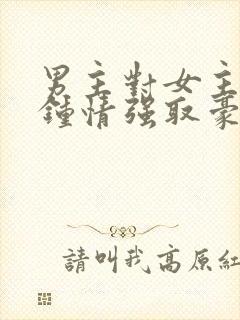 男主對女主
鍾情强取豪
請叫我高原紅